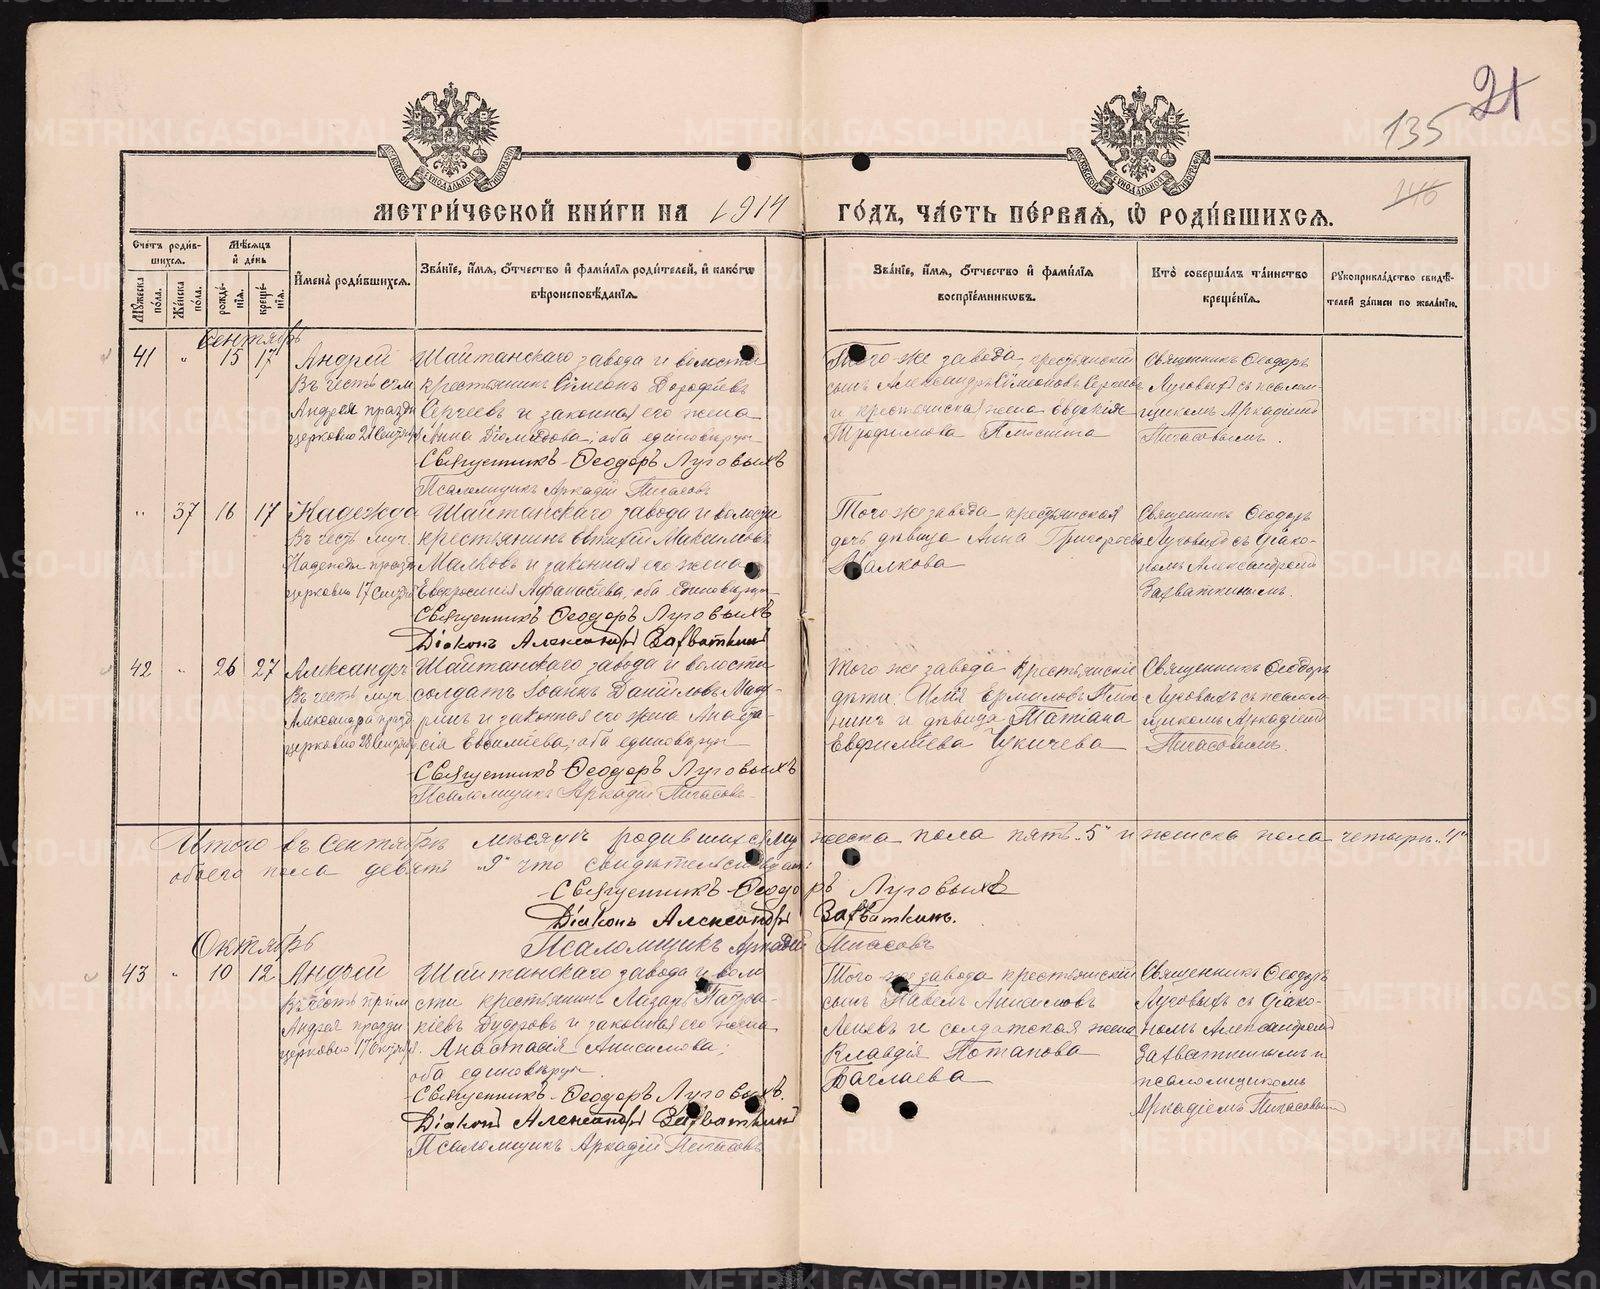 21
135
246
МЕТРИ́ЧЕСКОЙ КНИ́ГИ НА 1914 ГО́ДЪ, ЧА́СТЬ ПЕ́РВАЯ, Ѡ РОДИ́ВШИХСЯ.
Сче́тъ роди́в-
шихся.
Му́жеска пола.
Же́нска пола.
Мѣ́сяцъ и́ де́нь
рожде́-
нїя.
креще́-
нїя.
И҆мена̀ роди́вшихся.
Зва́нїе, и́мя, ѻ҆́тчество и҆ фами́лїя роди́телей, и҆ како́гѡ
вѣроисповѣ́данїя.
Зва́нїе, и́мя, ѻ҆́тчество и҆ фами́лїя
воспрїе́мниковъ.
Кто̀ соверша́лъ та́инство
креще́нїя.
Рꙋкоприкла́дство свидѣ́-
телей за́писи по жела́нїю.
Сентябрь
41 " 15 17 Андрей
Въ честь
Андрея праздн.
церковію 21 Сентября
Шайтанскаго завода и волости
крестьянинъ Сѵмеонъ Дорофеевъ
Сергеевъ и законная его жена
Анна Діомидова; оба единоверцы
Священникъ Ѳеодоръ Луговыхъ
Псаломщикъ Аркадій Пигасовъ
Того же завода крестьянскій
сынъ Александръ Сѵмеоновъ Сергеевъ
и крестьянская жена Евдокія
Трофимова
Священникъ Ѳеодоръ
Луговыхъ съ псалом-
щикомъ Аркадіемъ
Пигасовымъ.
" 37 16 17 Надежда
Въ честь муч.
Надежды празд.
церковію 17 Сентября
Шайтанскаго завода и волости
крестьянинъ Евтихій Максимовъ
Малковъ и законная его жена
Евфросинія Афанасіева, оба единоверцы
Священникъ Ѳеодоръ Луговыхъ
Діаконъ Александръ Захваткинъ
Того же завода крестьянская
дочь девица Анна Григорьева
Малкова
Священникъ Ѳеодоръ
Луговыхъ съ діако-
номъ Александромъ
Захваткинымъ.
42 " 26 27 Александръ
Въ честь муч.
Александра празд.
церковію 28 Сентября
Шайтанскаго завода и волости
солдатъ Іоаннъ Даніиловъ
и законная его жена Анаста-
сія Евфиміева; оба единоверцы
Священникъ Ѳеодоръ Луговыхъ
Псаломщикъ Аркадій Пигасовъ
Того же завода Крестьянскіе
дети: Илія Ермиловъ
и девица Татіана
Евфиміева
Священникъ Ѳеодоръ
Луговыхъ съ псалом-
щикомъ Аркадіемъ
Пигасовымъ.
Итого въ Сентябре месяце родившихся мужеска пола пять "5" и женска пола четыре "4"
обоего пола девять "9" что свидетельствуемъ:
Священникъ Ѳеодоръ Луговыхъ
Діаконъ Александръ Захваткинъ.
Псаломщикъ Аркадій Пигасовъ
Октябрь
43 " 10 12 Андрей
Въ честь прпм.
Андрея праздн.
церковію 17 Октября.
Шайтанскаго завода и воло
сти крестьянинъ Лазарь Патри-
кіевъ и законная его жена
Анастасія Анисимова;
оба единоверцы
Священникъ Ѳеодоръ Луговыхъ.
Діаконъ Александръ Захваткинъ
Псаломщикъ Аркадій Пигасовъ
Того же завода крестьянскій
сынъ Павелъ Анисимовъ
и солдатская жена
Клавдія Потапова
Баглаева
Священникъ Ѳеодоръ
Луговыхъ съ діако-
номъ Александромъ
Захваткинымъ и
псаломщикомъ
Аркадіемъ Пигасовымъ
METRIKI.GASO-URAL.RU